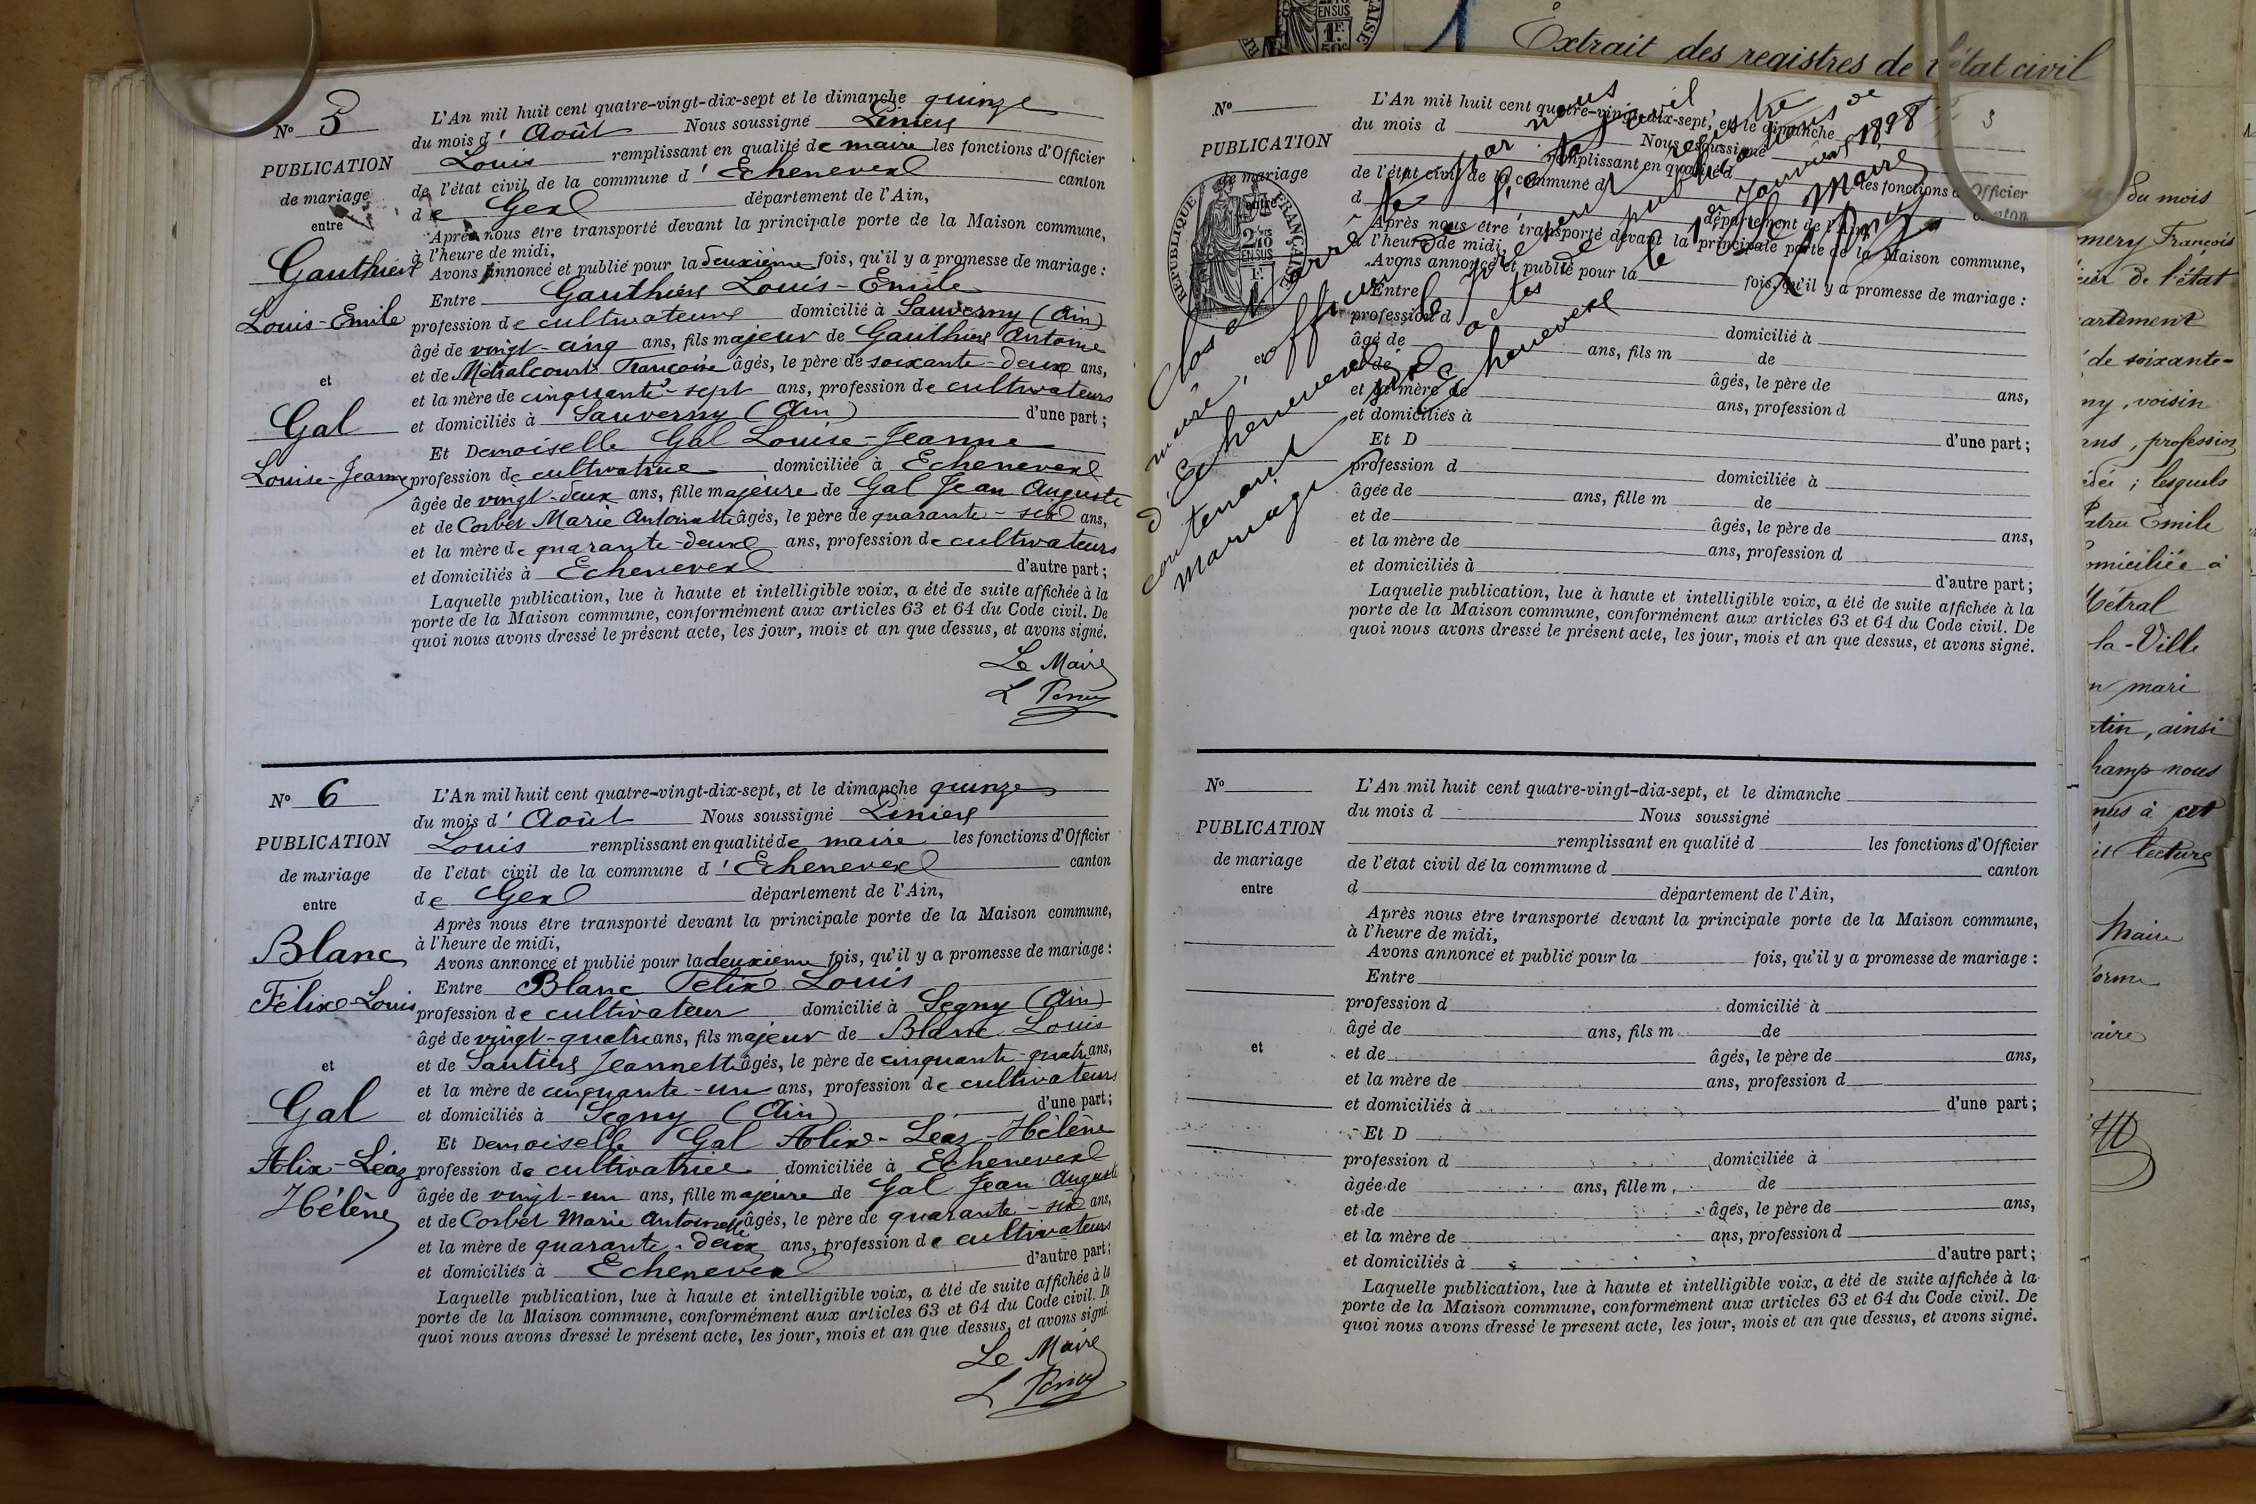 N° 5
PUBLICATION
de mariage
entre
Gauthier
Louis-Emile
et
Gal
Louise-Jeanne
L'An mil huit cent quatre-vingt-dix-sept et le dimanche quinze
du mois d' Août Nous soussigné
Louis remplissant en qualité de maire les fonctions d'Officier
de l'état civil de la commune d' Echenevex canton
de Gex département de l'Ain,
Après nous être transporté devant la principale porte de la Maison commune,
à l'heure de midi,
Avons annoncé et publié pour la deuxième fois, qu'il y a promesse de mariage :
Entre Gauthier Louis-Emile
profession de cultivateur domicilié à Sauverny (Ain)
âgé de vingt-cinq ans, fils majeur de Gauthier Antoine
et de Françoise âgés, le père de soixante-deux ans,
et la mère de cinquante-sept ans, profession de cultivateurs
et domiciliés à Sauverny (Ain) d'une part ;
Et Demoiselle Gal Louise-Jeanne
profession de cultivatrice domiciliée à Echenevex
âgée de vingt-deux ans, fille majeure de Gal Jean Auguste
et de Corbet Marie Antoinette âgés, le père de quarante-six ans,
et la mère de quarante-deux ans, profession de cultivateurs
et domiciliés à Echenevex d'autre part ;
Laquelle publication, lue à haute et intelligible voix, a été de suite affichée à la
porte de la Maison commune, conformément aux articles 63 et 64 du Code civil. De
quoi nous avons dressé le présent acte, les jour, mois et an que dessus, et avons signé.
Le Maire
N° 6
PUBLICATION
de mariage
entre
Blanc
Félix-Louis
et
Gal
Alix-Léaz
Hélène
L'An mil huit cent quatre-vingt-dix-sept, et le dimanche quinze
du mois d' Août Nous soussigné
Louis remplissant en qualité de maire les fonctions d'Officier
de l'état civil de la commune d' Echenevex canton
de Gex département de l'Ain,
Après nous être transporté devant la principale porte de la Maison commune,
à l'heure de midi,
Avons annoncé et publié pour la deuxième fois, qu'il y a promesse de mariage :
Entre Blanc Félix Louis
profession de cultivateur domicilié à Segny (Ain)
âgé de vingt-quatre ans, fils majeur de Blanc Louis
et de Jeannette âgés, le père de cinquante-quatre ans,
et la mère de cinquante-un ans, profession de cultivateurs
et domiciliés à Segny (Ain) d'une part ;
Et Demoiselle Gal Alix-Léaz-Hélène
profession de cultivatrice domiciliée à Echenevex
âgée de vingt-un ans, fille majeure de Gal Jean Auguste
et de Corbet Marie Antoinette âgés, le père de quarante-six ans,
et la mère de quarante-deux ans, profession de cultivateurs
et domiciliés à Echenevex d'autre part ;
Laquelle publication, lue à haute et intelligible voix, a été de suite affichée à la
porte de la Maison commune, conformément aux articles 63 et 64 du Code civil. De
quoi nous avons dressé le présent acte, les jour, mois et an que dessus, et avons signé.
Le Maire
Extrait des registres de l'état civil
N°
PUBLICATION
de mariage
entre
et
L'An mil huit cent quatre-vingt-dix-sept, et le dimanche
du mois d Nous soussigné
remplissant en qualité d les fonctions d'Officier
de l'état civil de la commune d canton
d département de l'Ain,
Après nous être transporté devant la principale porte de la Maison commune,
à l'heure de midi,
Avons annoncé et publié pour la fois, qu'il y a promesse de mariage :
Entre
profession d domicilié à
âgé de ans, fils m de
et de âgés, le père de ans,
et la mère de ans, profession d
et domiciliés à d'une part ;
Et D
profession d domiciliée à
âgée de ans, fille m de
et de âgés, le père de ans,
et la mère de ans, profession d
et domiciliés à d'autre part ;
Laquelle publication, lue à haute et intelligible voix, a été de suite affichée à la
porte de la Maison commune, conformément aux articles 63 et 64 du Code civil. De
quoi nous avons dressé le présent acte, les jour, mois et an que dessus, et avons signé.
Clos et arrêté par nous
maire, officier de l'état civil
d'Echenevex, le présent registre
contenant six actes de publications de
mariage. Echenevex le 1er Janvier 1898
Le Maire
RÉPUBLIQUE FRANÇAISE
N°
PUBLICATION
de mariage
entre
et
L'An mil huit cent quatre-vingt-dix-sept, et le dimanche
du mois d Nous soussigné
remplissant en qualité d les fonctions d'Officier
de l'état civil de la commune d canton
d département de l'Ain,
Après nous être transporté devant la principale porte de la Maison commune,
à l'heure de midi,
Avons annoncé et publié pour la fois, qu'il y a promesse de mariage :
Entre
profession d domicilié à
âgé de ans, fils m de
et de âgés, le père de ans,
et la mère de ans, profession d
et domiciliés à d'une part ;
Et D
profession d domiciliée à
âgée de ans, fille m de
et de âgés, le père de ans,
et la mère de ans, profession d
et domiciliés à d'autre part ;
Laquelle publication, lue à haute et intelligible voix, a été de suite affichée à la
porte de la Maison commune, conformément aux articles 63 et 64 du Code civil. De
quoi nous avons dressé le présent acte, les jour, mois et an que dessus, et avons signé.
du mois
François
de l'état
de soixante-
ny, voisin
ans, profession
; lesquels
Emile
domiciliée à
Métral
la-Ville
mari
, ainsi
nous
à cet
lecture
Maire